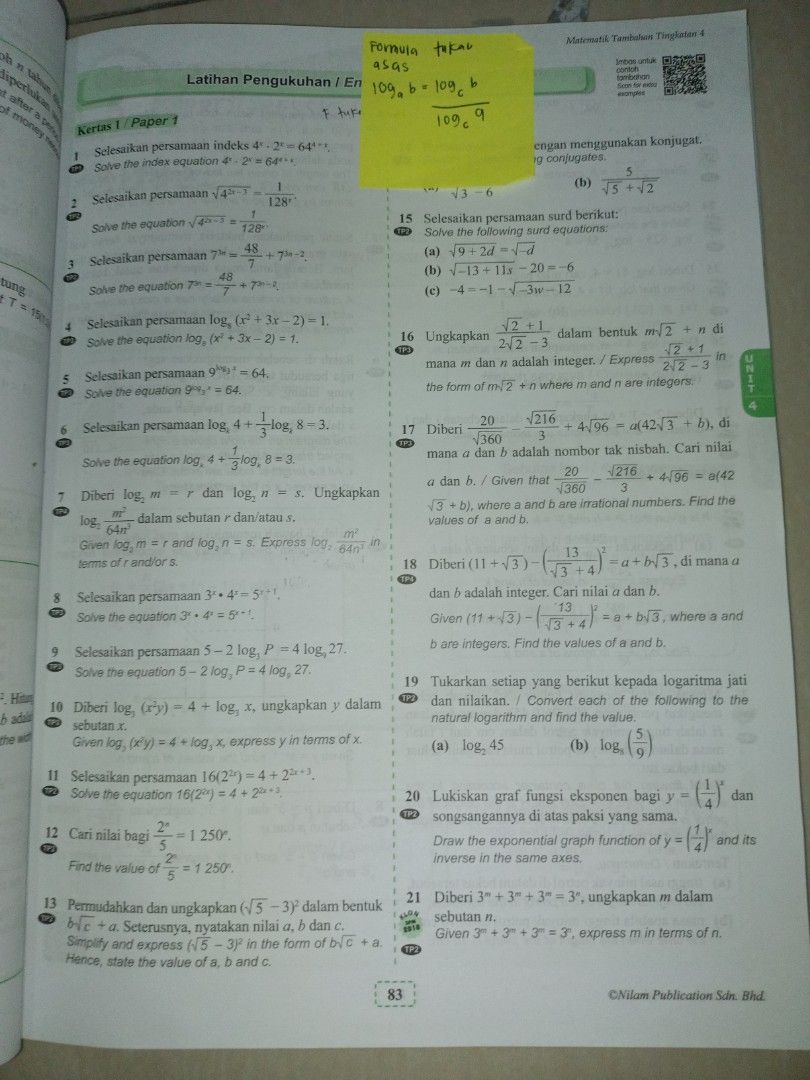 Matematik Tambahan Tingkatan 4
Formula tukar
asas
log_a b = log_c b / log_c a
Imbas untuk
contoh
tambahan
Scan for extra
examples
Latihan Pengukuhan / En
Kertas 1 / Paper 1
1 Selesaikan persamaan indeks 4ˣ · 2ˣ = 64⁴⁺ˣ.
TP1 Solve the index equation 4ˣ · 2ˣ = 64⁴⁺ˣ.
2 Selesaikan persamaan √(4^(2x−3)) = 1/128^y.
TP2 Solve the equation √(4^(2x−3)) = 1/128^y.
3 Selesaikan persamaan 7^(3n) = 48/7 + 7^(3n−2).
Solve the equation 7^(3n) = 48/7 + 7^(3n−2).
4 Selesaikan persamaan log₈ (x² + 3x − 2) = 1.
Solve the equation log₈ (x² + 3x − 2) = 1.
5 Selesaikan persamaan 9^(log₃ x) = 64.
Solve the equation 9^(log₃ x) = 64.
6 Selesaikan persamaan logₓ 4 + 1/3 logₓ 8 = 3.
Solve the equation logₓ 4 + 1/3 logₓ 8 = 3.
7 Diberi log₂ m = r dan log₂ n = s. Ungkapkan
log₂ m²/64n³ dalam sebutan r dan/atau s.
Given log₂ m = r and log₂ n = s. Express log₂ m²/64n³ in
terms of r and/or s.
8 Selesaikan persamaan 3ˣ • 4ˣ = 5ˣ⁺¹.
Solve the equation 3ˣ • 4ˣ = 5ˣ⁺¹.
9 Selesaikan persamaan 5 − 2 log₃ P = 4 log₉ 27.
Solve the equation 5 − 2 log₃ P = 4 log₉ 27.
10 Diberi log₃ (x²y) = 4 + log₃ x, ungkapkan y dalam
TP2 sebutan x.
Given log₃ (x²y) = 4 + log₃ x, express y in terms of x.
11 Selesaikan persamaan 16(2^(2x)) = 4 + 2^(2x+3).
TP2 Solve the equation 16(2^(2x)) = 4 + 2^(2x+3).
12 Cari nilai bagi 2ⁿ/5 = 1 250ⁿ.
Find the value of 2ⁿ/5 = 1 250ⁿ.
13 Permudahkan dan ungkapkan (√5 − 3)² dalam bentuk
TP2 b√c + a. Seterusnya, nyatakan nilai a, b dan c.
Simplify and express (√5 − 3)² in the form of b√c + a.
Hence, state the value of a, b and c.
engan menggunakan konjugat.
g conjugates.
√3 − 6
(b) 5/(√5 + √2)
15 Selesaikan persamaan surd berikut:
TP2 Solve the following surd equations:
(a) √(9 + 2d) = √(−d)
(b) √(−13 + 11s) − 20 = −6
(c) −4 = −1 − √(−3w − 12)
16 Ungkapkan (√2 + 1)/(2√2 − 3) dalam bentuk m√2 + n di
TP3 mana m dan n adalah integer. / Express (√2 + 1)/(2√2 − 3) in
the form of m√2 + n where m and n are integers.
17 Diberi 20/√360 − √216/3 + 4√96 = a(42√3 + b), di
TP3 mana a dan b adalah nombor tak nisbah. Cari nilai
a dan b. / Given that 20/√360 − √216/3 + 4√96 = a(42
√3 + b), where a and b are irrational numbers. Find the
values of a and b.
18 Diberi (11 + √3) − (13/(√3 + 4))² = a + b√3, di mana a
TP4 dan b adalah integer. Cari nilai a dan b.
Given (11 + √3) − (13/(√3 + 4))² = a + b√3, where a and
b are integers. Find the values of a and b.
19 Tukarkan setiap yang berikut kepada logaritma jati
TP2 dan nilaikan. / Convert each of the following to the
natural logarithm and find the value.
(a) log₂ 45 (b) log₈ (5/9)
20 Lukiskan graf fungsi eksponen bagi y = (1/4)ˣ dan
TP2 songsangannya di atas paksi yang sama.
Draw the exponential graph function of y = (1/4)ˣ and its
inverse in the same axes.
21 Diberi 3ᵐ + 3ᵐ + 3ᵐ = 3ⁿ, ungkapkan m dalam
KLON sebutan n.
Given 3ᵐ + 3ᵐ + 3ᵐ = 3ⁿ, express m in terms of n.
TP2
UNIT
4
83
©Nilam Publication Sdn. Bhd.